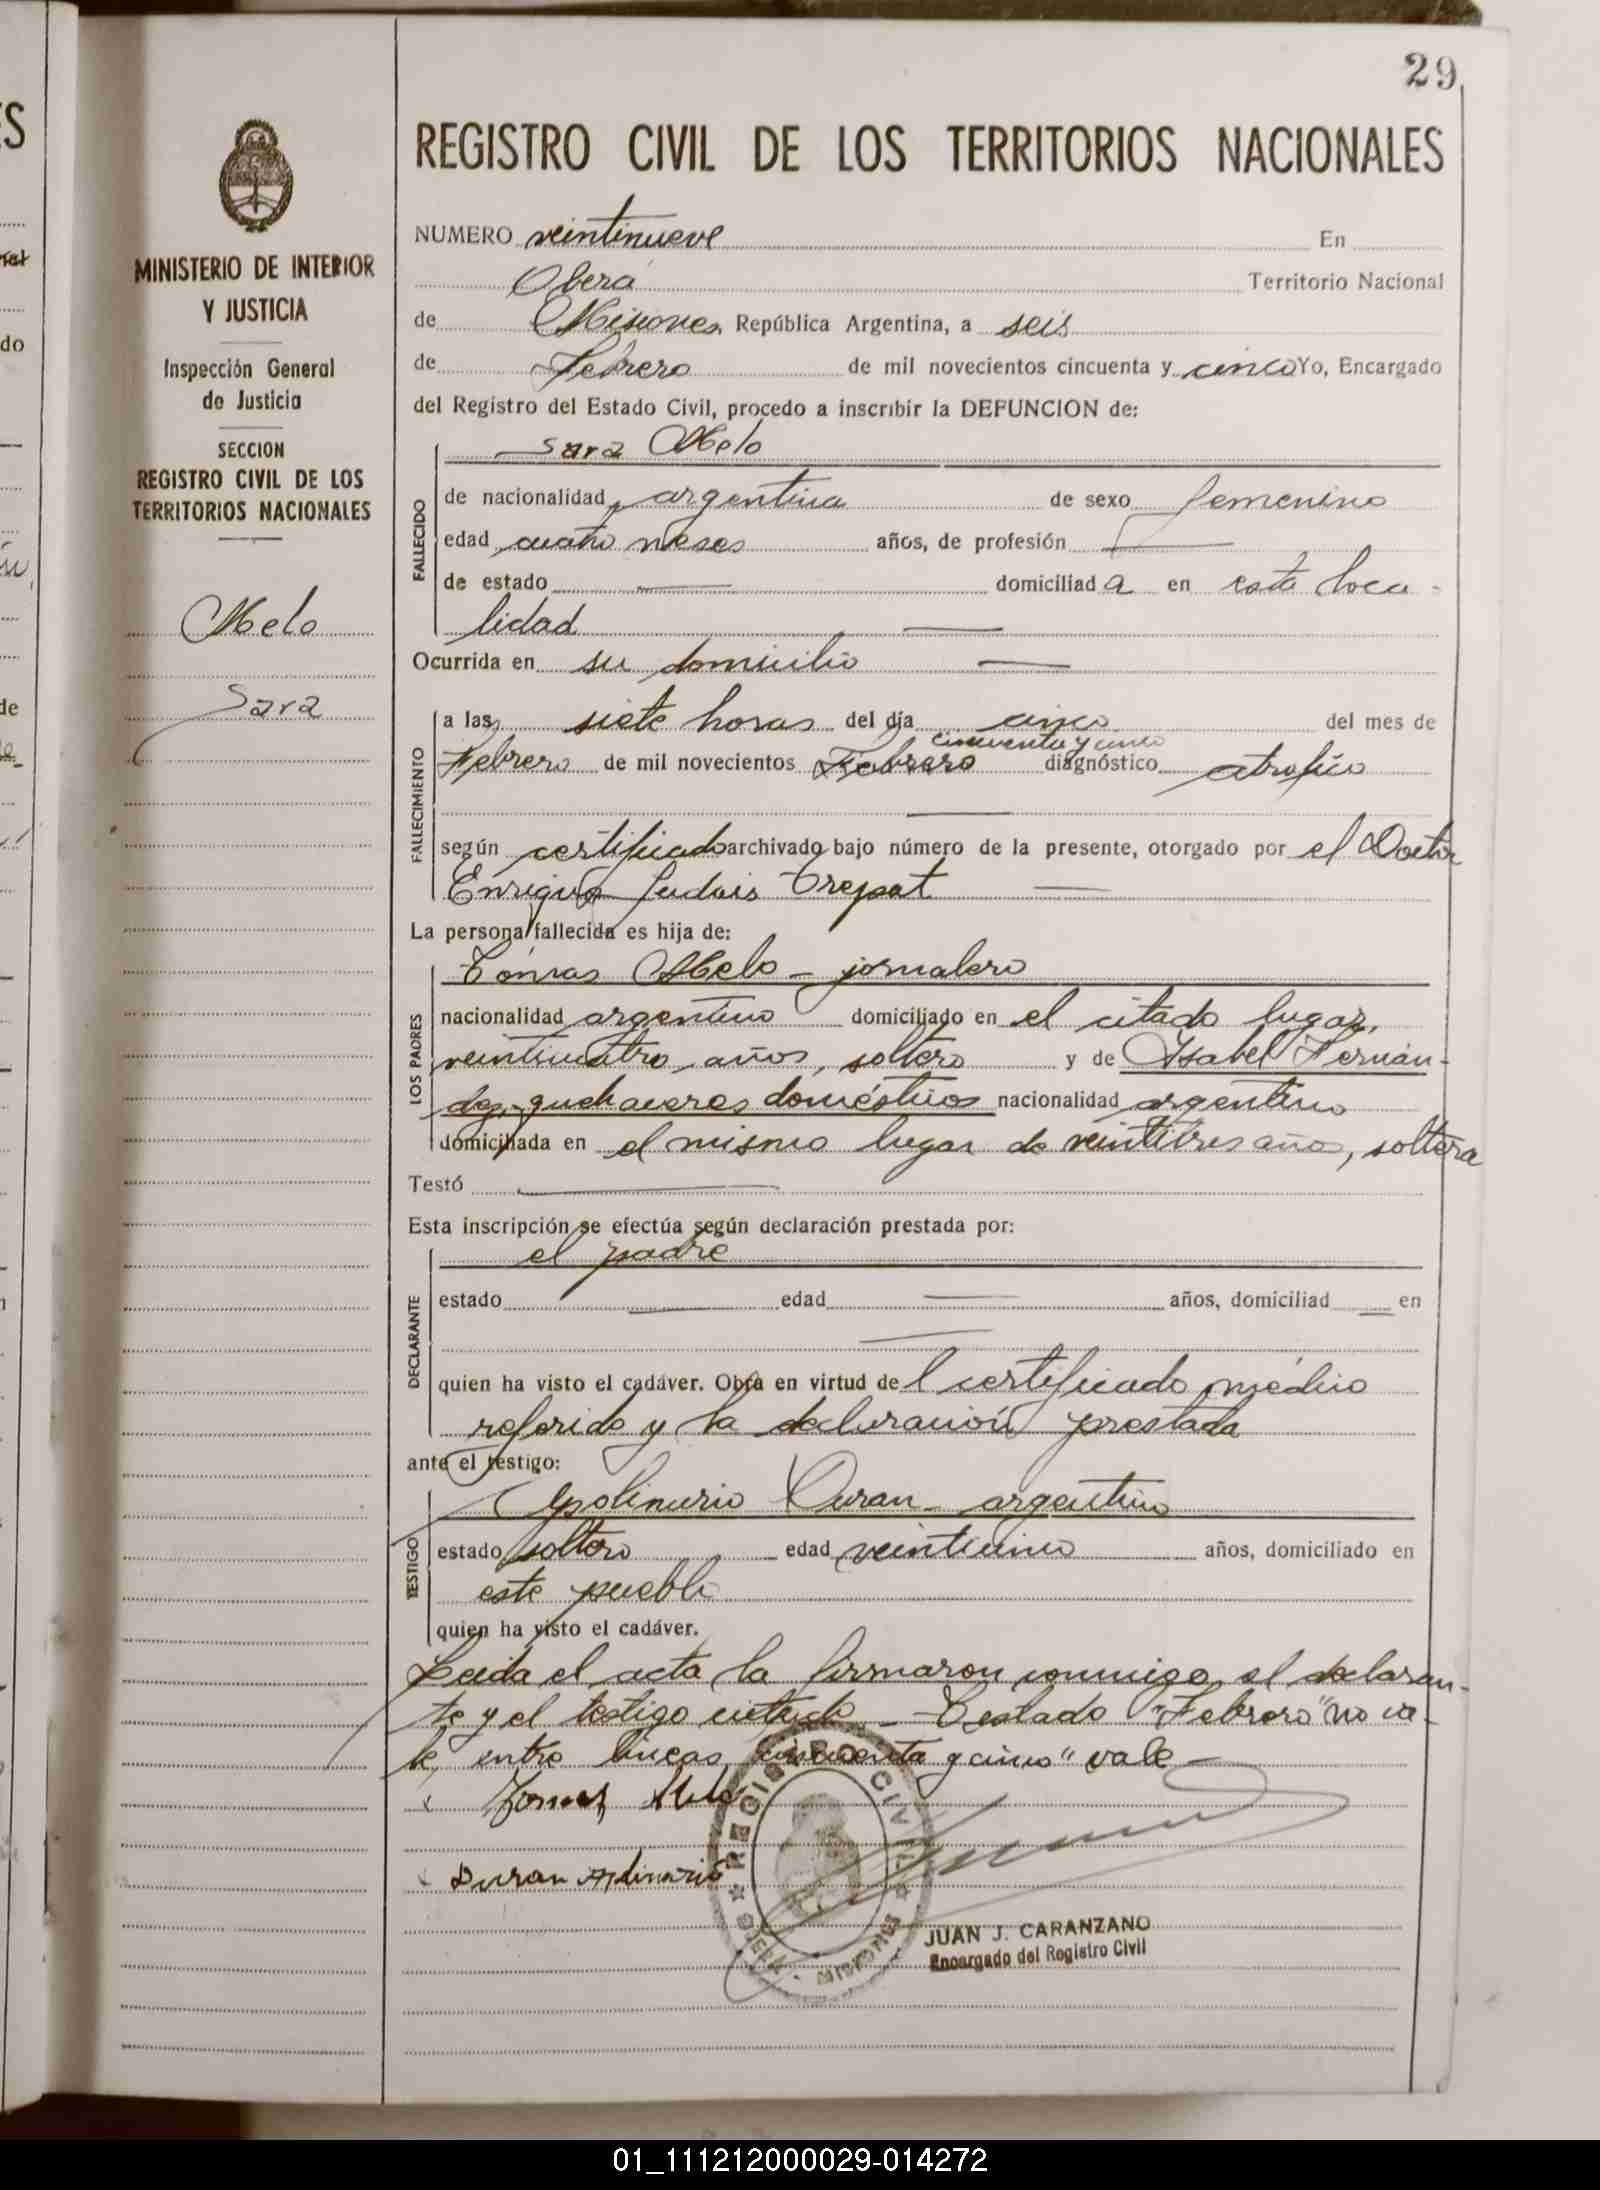 29
REGISTRO CIVIL DE LOS TERRITORIOS NACIONALES
MINISTERIO DE INTERIOR
Y JUSTICIA
Inspección General
de Justicia
SECCION
REGISTRO CIVIL DE LOS
TERRITORIOS NACIONALES
Melo
Sara
NUMERO veintinueve En
Oberá Territorio Nacional
de Misiones, República Argentina, a seis
de Febrero de mil novecientos cincuenta y cinco Yo, Encargado
del Registro del Estado Civil, procedo a inscribir la DEFUNCION de:
Sara Melo
FALLECIDO
de nacionalidad argentina de sexo femenino
edad cuatro meses años, de profesión
de estado domiciliada en esta loca-
lidad
Ocurrida en su domicilio
FALLECIMIENTO
a las siete horas del día cinco del mes de
cincuenta y cinco
Febrero de mil novecientos Febrero diagnóstico atrofico
según certificado archivado bajo número de la presente, otorgado por el Doctor
Enrique Trepat
La persona fallecida es hija de:
LOS PADRES
Tómas Melo - jornalero
nacionalidad argentino domiciliado en el citado lugar,
veinticuatro años, soltero y de Isabel Fernán-
dez, quehaceres domésticos nacionalidad argentino
domiciliada en el mismo lugar de veintitres años, soltera
Testó
Esta inscripción se efectúa según declaración prestada por:
el padre
DECLARANTE
estado edad años, domiciliad en
quien ha visto el cadáver. Obra en virtud del certificado médico
referido y la declaración prestada
ante el testigo:
TESTIGO
Apolinario Duran - argentino
estado soltero edad veinticinco años, domiciliado en
este pueblo
quien ha visto el cadáver.
Leida el acta la firmaron conmigo el declaran-
te y el testigo citado - Testado "Febrero" no va-
le, entre lineas "cincuenta y cinco" vale -
Tomas Melo
Duran Apolinario
REGISTRO CIVIL
OBERA - MISIONES
JUAN J. CARANZANO
Encargado del Registro Civil
01_111212000029-014272